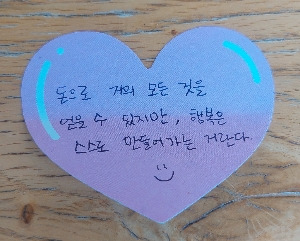 돈으로 거의 모든 것을
얻을 수 있지만, 행복은
스스로 만들어가는 거란다.